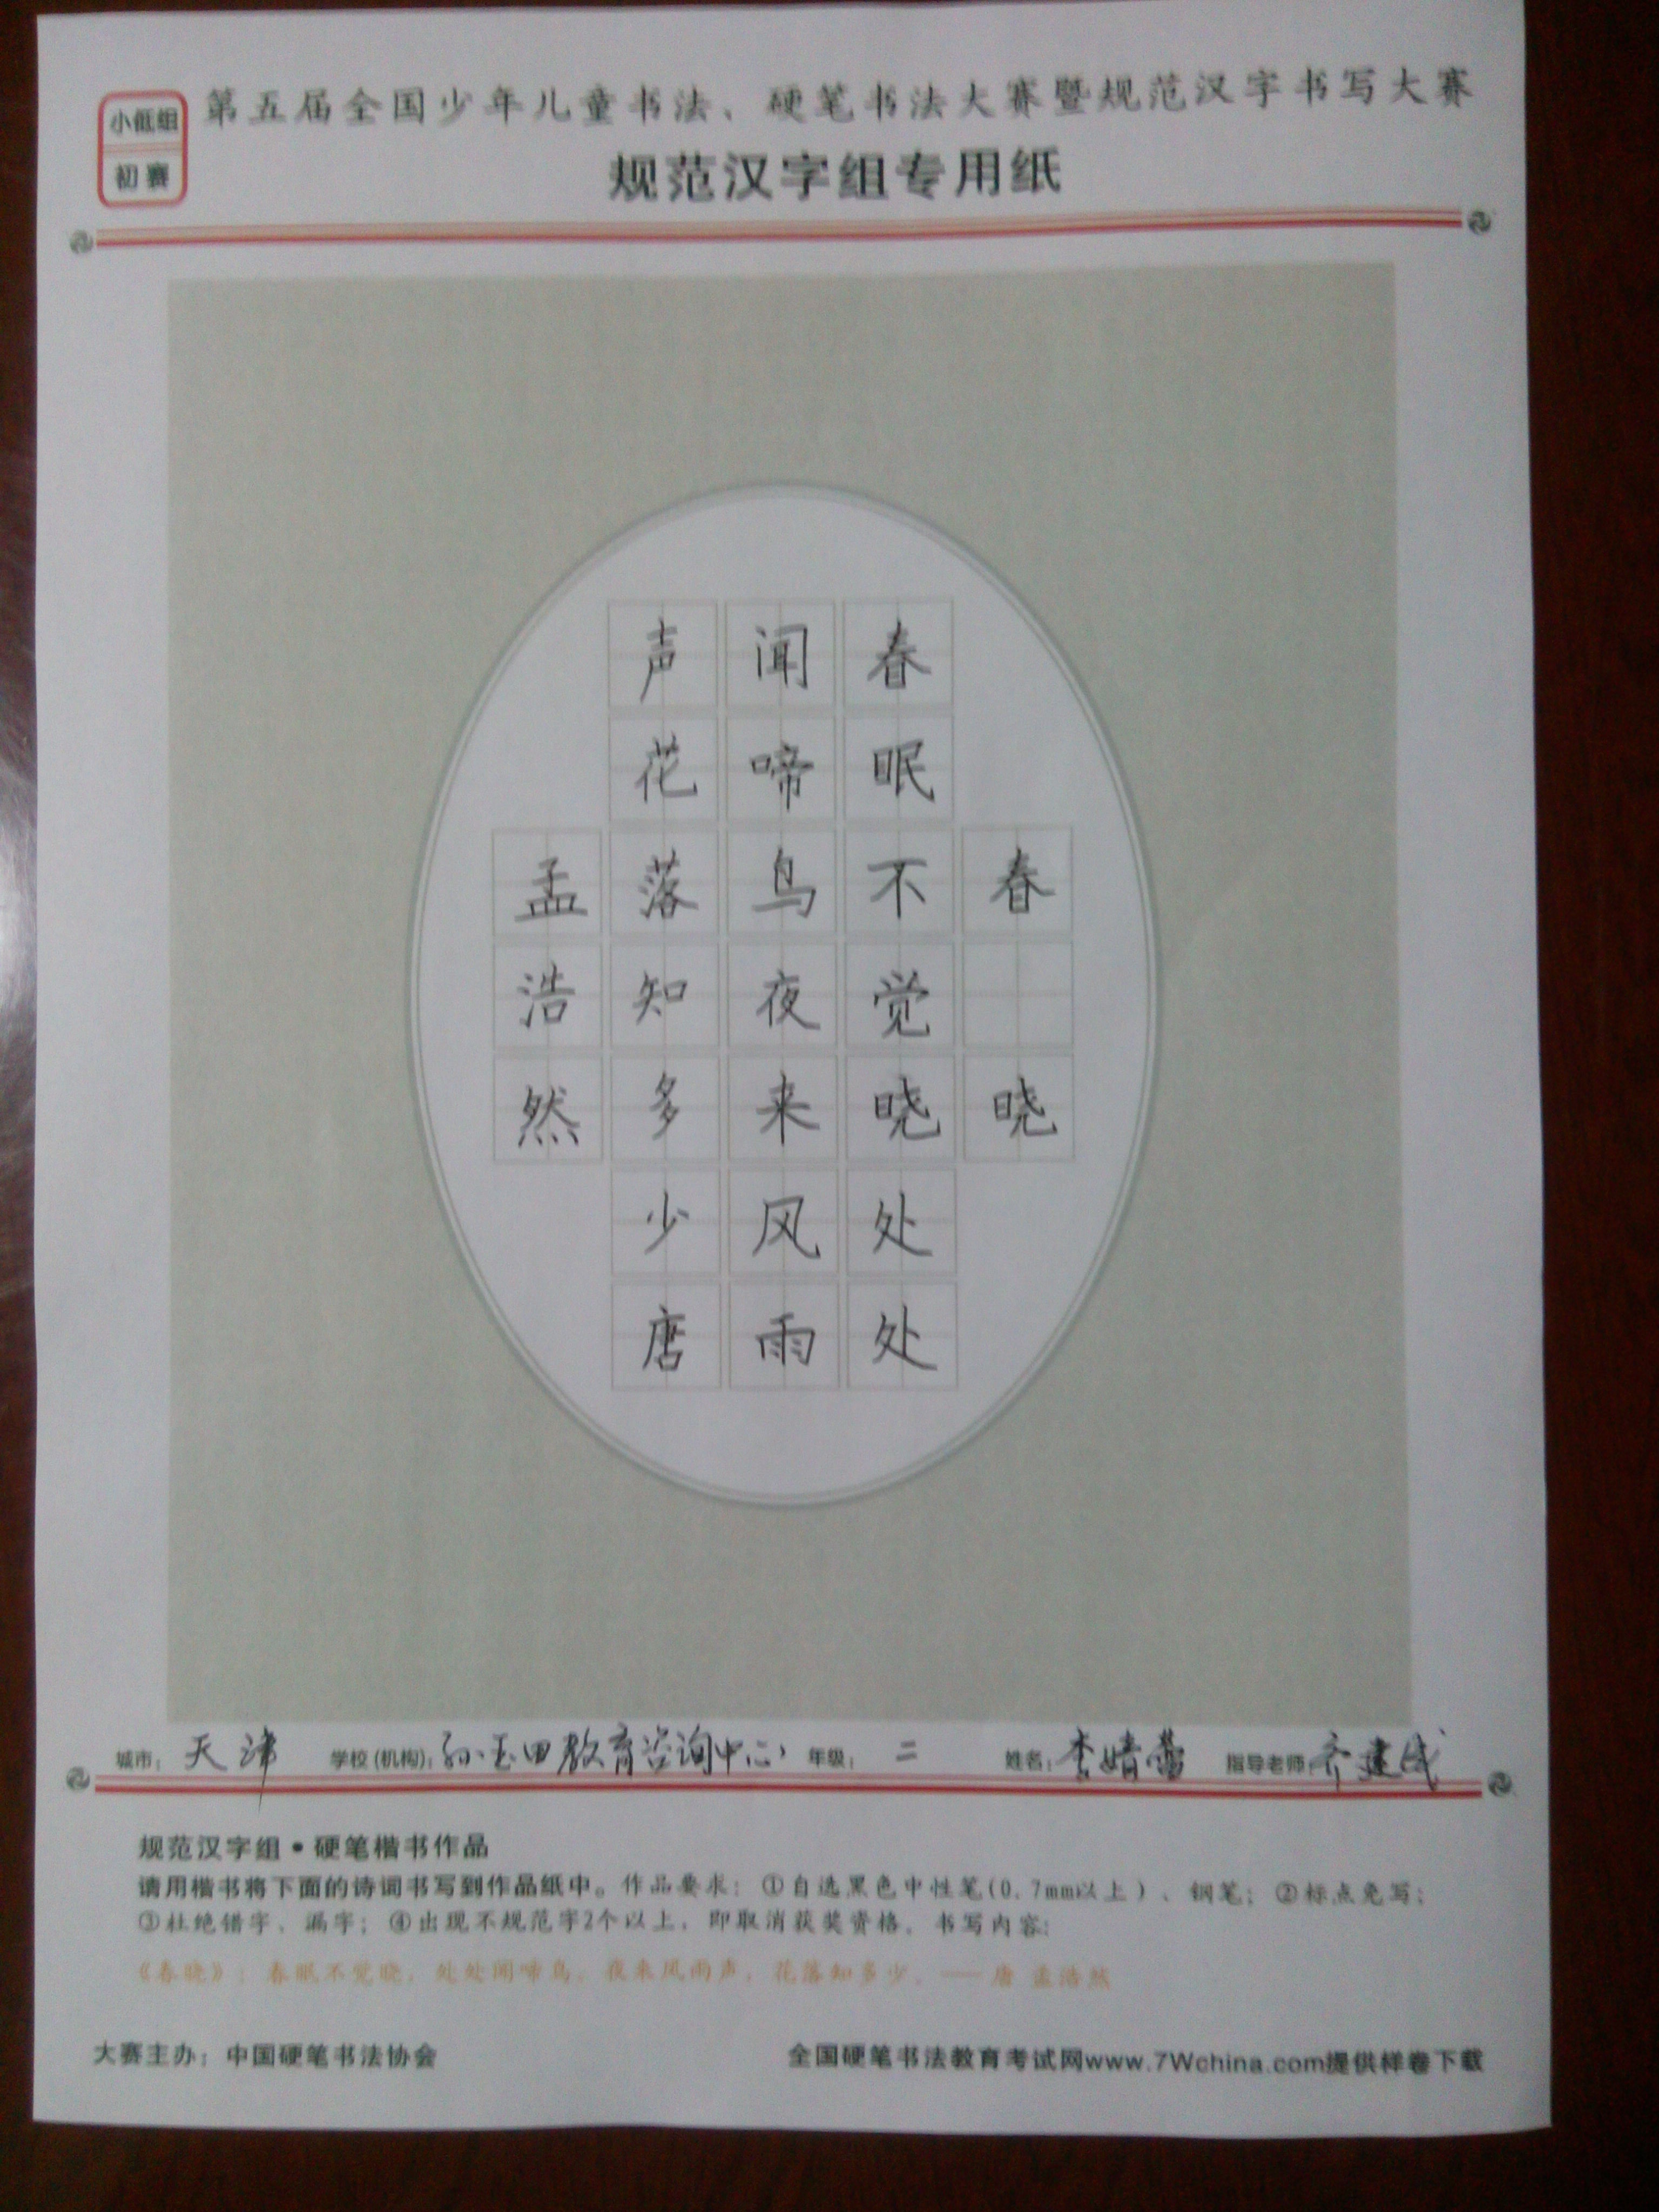 小低组
初赛
第五届全国少年儿童书法、硬笔书法大赛暨规范汉字书写大赛
规范汉字组专用纸
春晓
春眠不觉晓处处
闻啼鸟夜来风雨
声花落知多少唐
孟浩然
城市：天津 学校(机构)：孙玉田教育咨询中心 年级：二 姓名：李婧蕾 指导老师：齐建成
规范汉字组·硬笔楷书作品
请用楷书将下面的诗词书写到作品纸中。作品要求：①自选黑色中性笔(0.7mm以上)、钢笔；②标点免写；
③杜绝错字、漏字；④出现不规范字2个以上，即取消获奖资格。书写内容：
《春晓》：春眠不觉晓，处处闻啼鸟。夜来风雨声，花落知多少。——唐 孟浩然
大赛主办：中国硬笔书法协会
全国硬笔书法教育考试网www.7Wchina.com提供样卷下载